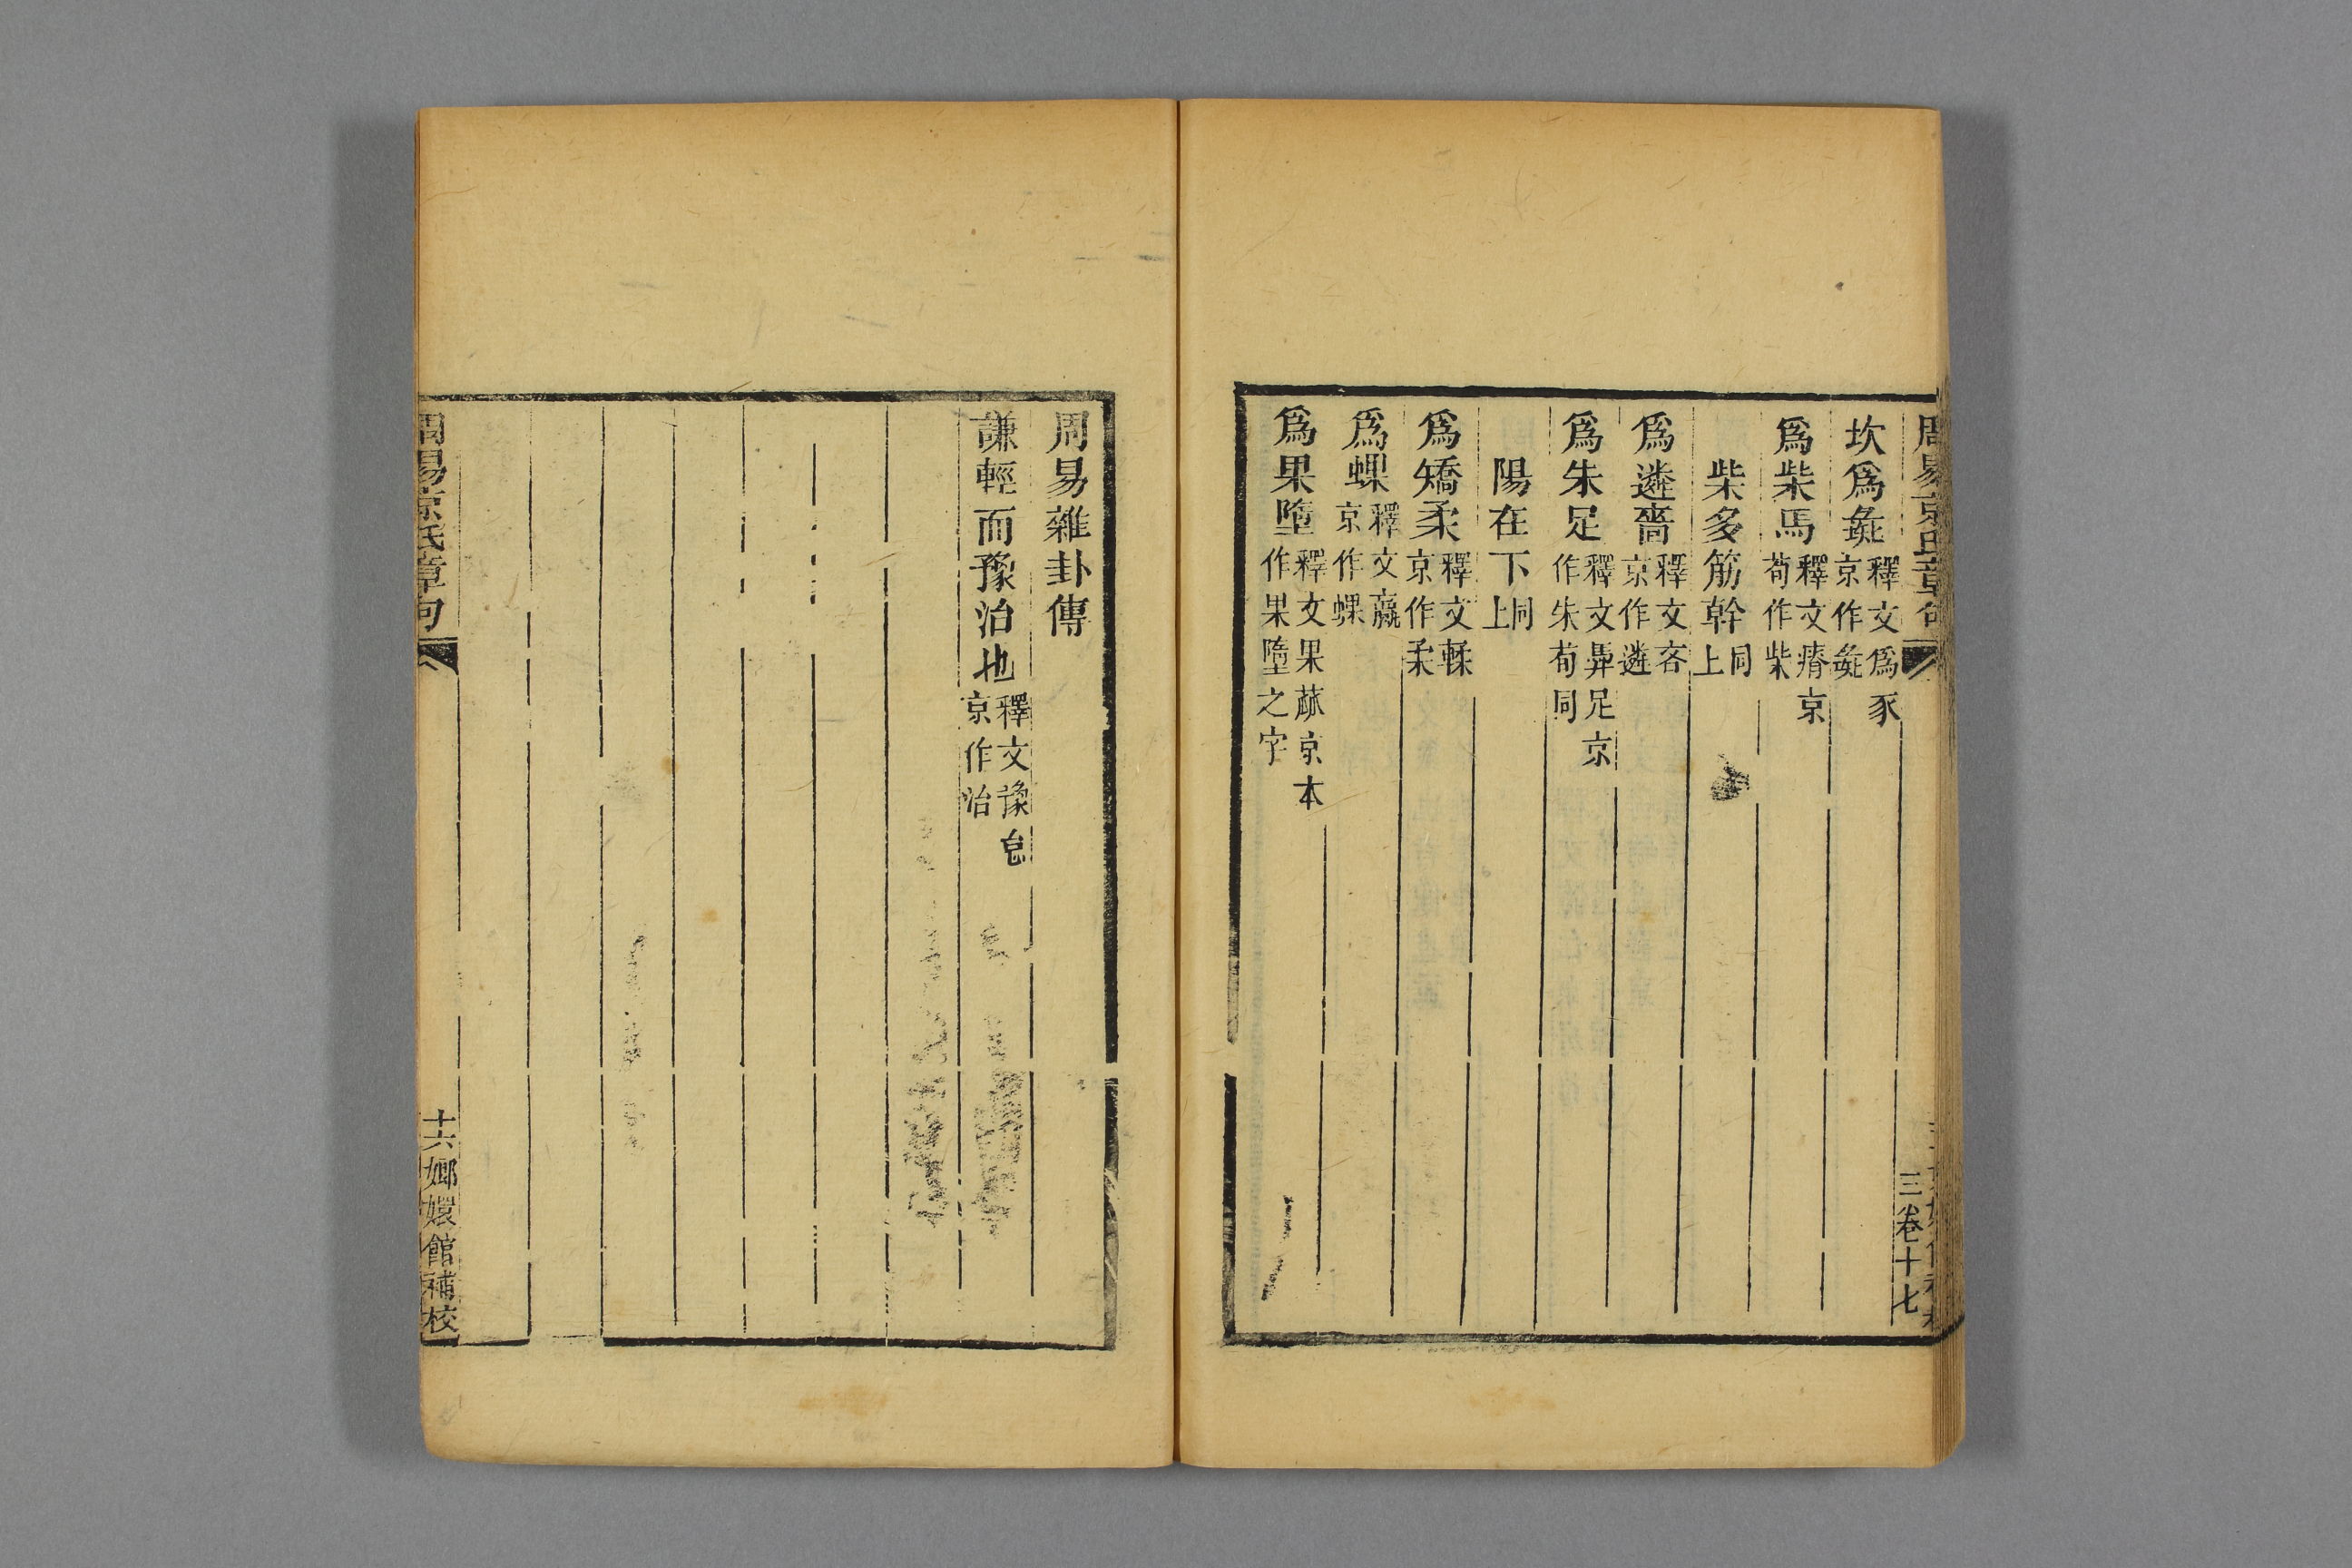 周易京氏章句
三卷十七
坎爲彘釋文爲豕京作彘
爲柴馬釋文瘠京荀作柴
柴多筋幹同上
爲遴嗇釋文吝京作遴
爲朱足釋文馵足京作朱荀同
陽在下同上
爲矯柔釋文輮京作柔
爲螺釋文蠃京作螺
爲果墮釋文果蓏京本作果墮之字
周易雜卦傳
謙輕而豫治也釋文豫怠京作治
周易京氏章句
十六嫏嬛館補校